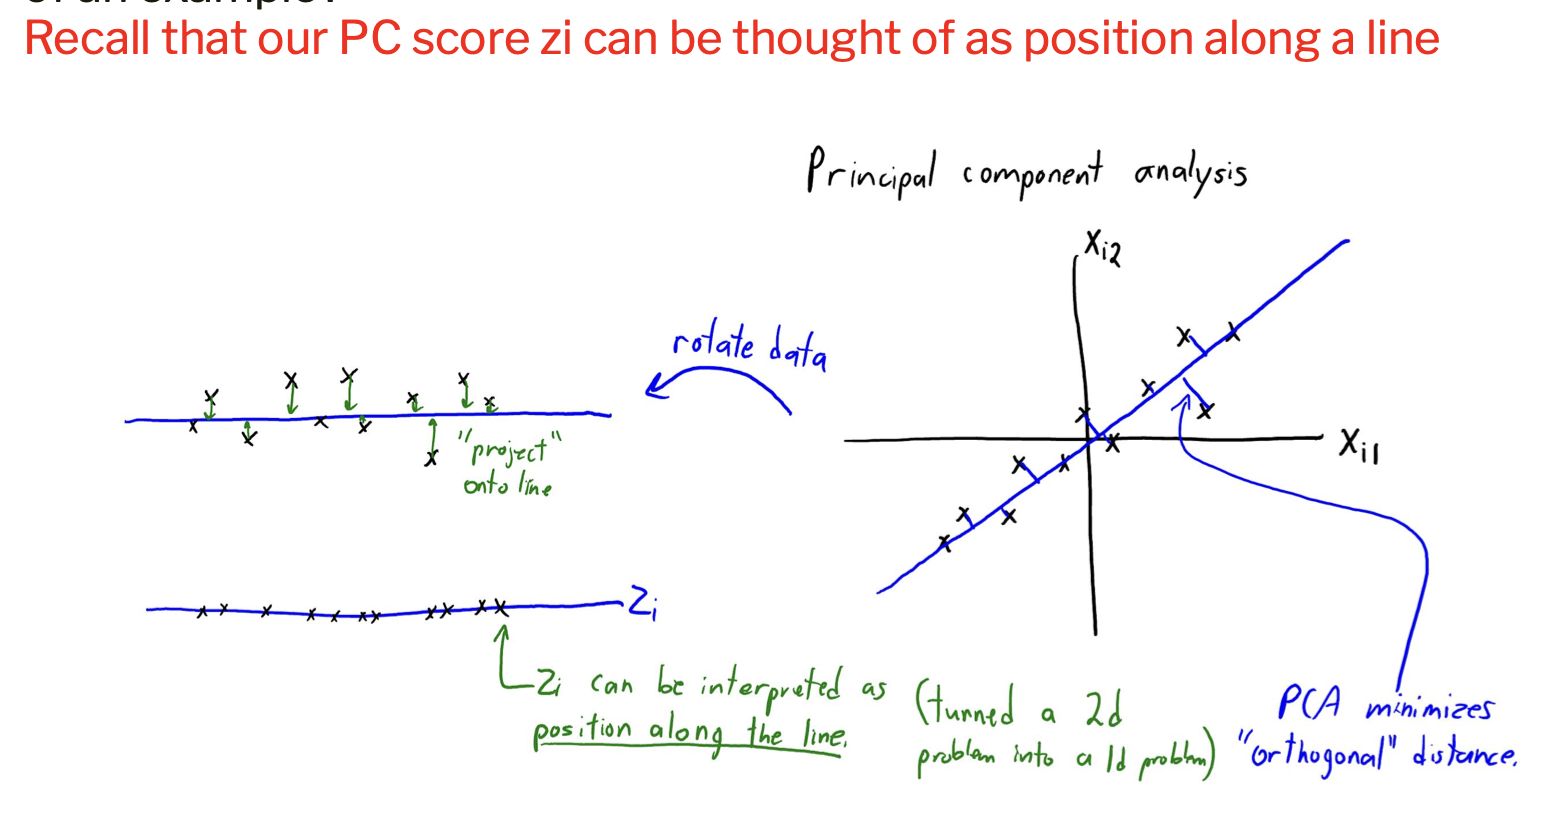 of an example?
Recall that our PC score zi can be thought of as position along a line
Principal component analysis
Xi2
rotate data
"project"
onto line
Xi1
Zi
Zi can be interpreted as
position along the line.
(turned a 2d
problem into a 1d problem)
PCA minimizes
"orthogonal" distance.